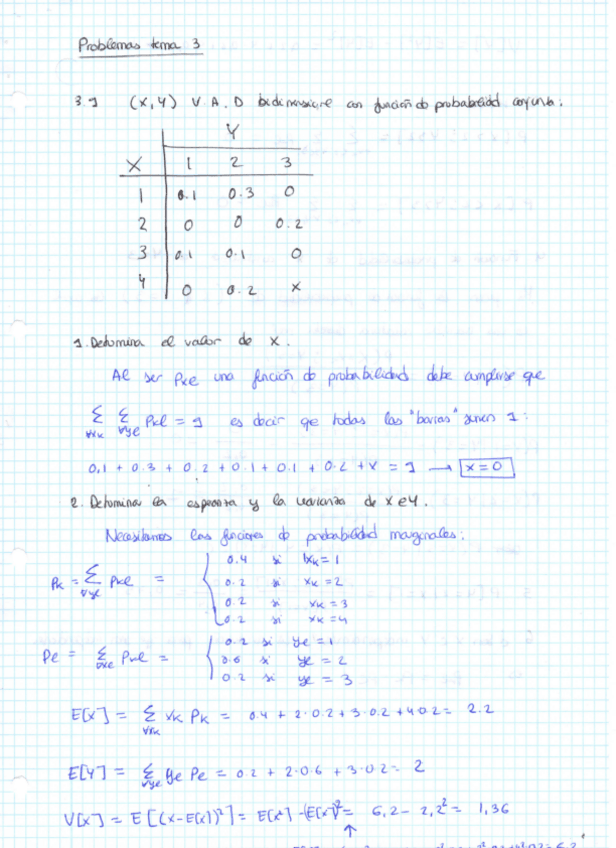 Problemas tema 3
3.1 (X,Y) V.A.D bidimensional con función de probabilidad conjunta:
Y
X 1 2 3
1 0.1 0.3 0
2 0 0 0.2
3 0.1 0.1 0
4 0 0.2 x
1. Determina el valor de x.
Al ser Pkl una función de probabilidad debe cumplirse que
Σ∀xk Σ∀yl Pkl = 1 es decir que todas las "barras" sumen 1:
0,1 + 0.3 + 0.2 + 0.1 + 0.1 + 0.2 + x = 1 → x = 0
2. Determina la esperanza y la varianza de X e Y.
Necesitamos las funciones de probabilidad marginales:
Pk = Σ∀yl Pkl = { 0.4 si xk = 1
0.2 si xk = 2
0.2 si xk = 3
0.2 si xk = 4
Pl = Σ∀xk Pkl = { 0.2 si yl = 1
0.6 si yl = 2
0.2 si yl = 3
E[X] = Σ∀xk xk Pk = 0.4 + 2·0.2 + 3·0.2 + 4·0.2 = 2.2
E[Y] = Σ∀yl yl Pl = 0.2 + 2·0.6 + 3·0.2 = 2
V[X] = E[(X-E[X])²] = E[X²] - (E[X])² = 6,2 - 2,2² = 1,36
↑